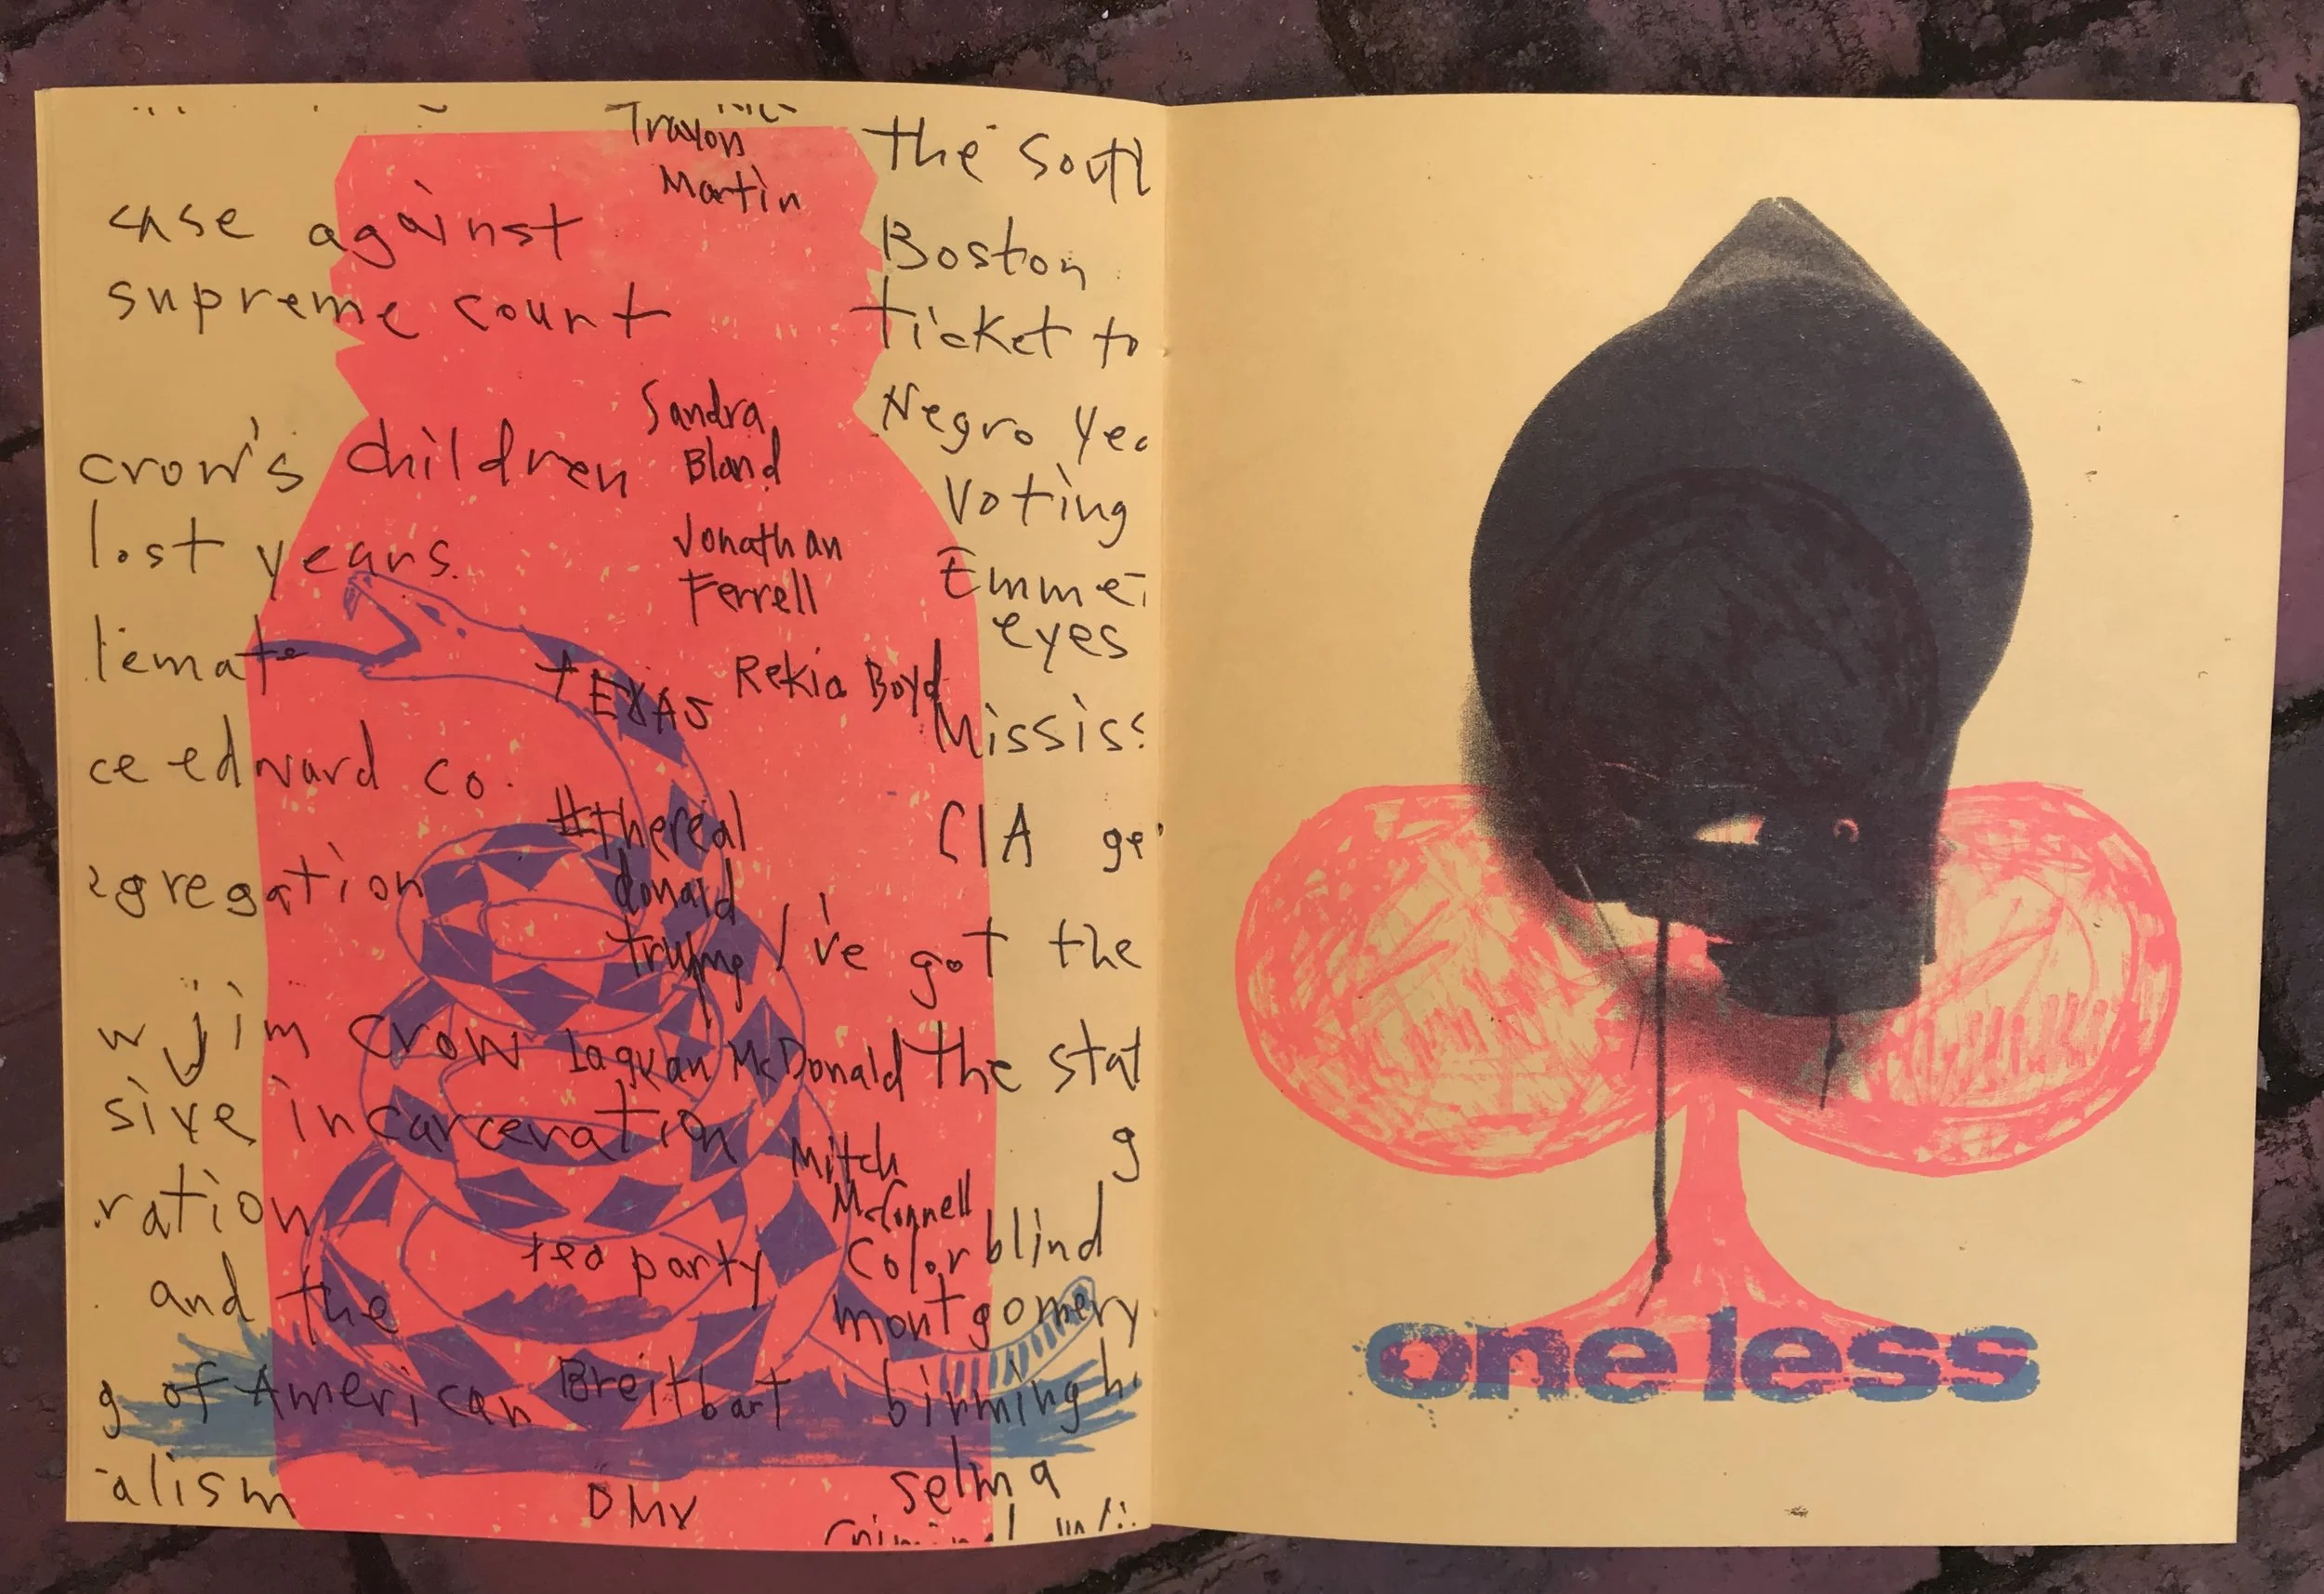 Trayon
Martin
case against
supreme court
crow's children
lost years.
temat
ce edward co.
egregation
w jim crow
sive incarceration
ration
and the
g of American
alism
Sandra
Bland
Jonathan
Ferrell
tEXAS
Rekia Boyd
#thereal
donald
trump
Laquan McDonald
Mitch
McConnell
tea party
Breitbart
DMV
the South
Boston
ticket to
Negro
Voting
Emme
eyes
Missis
CIA ge
I've got the
the stat
g
Color blind
montgomery
birmingh
selma
one less